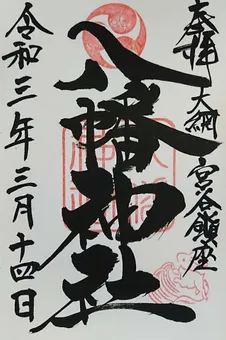 奉拝 大綱 宮谷鎮座
八幡神社
令和三年三月十四日